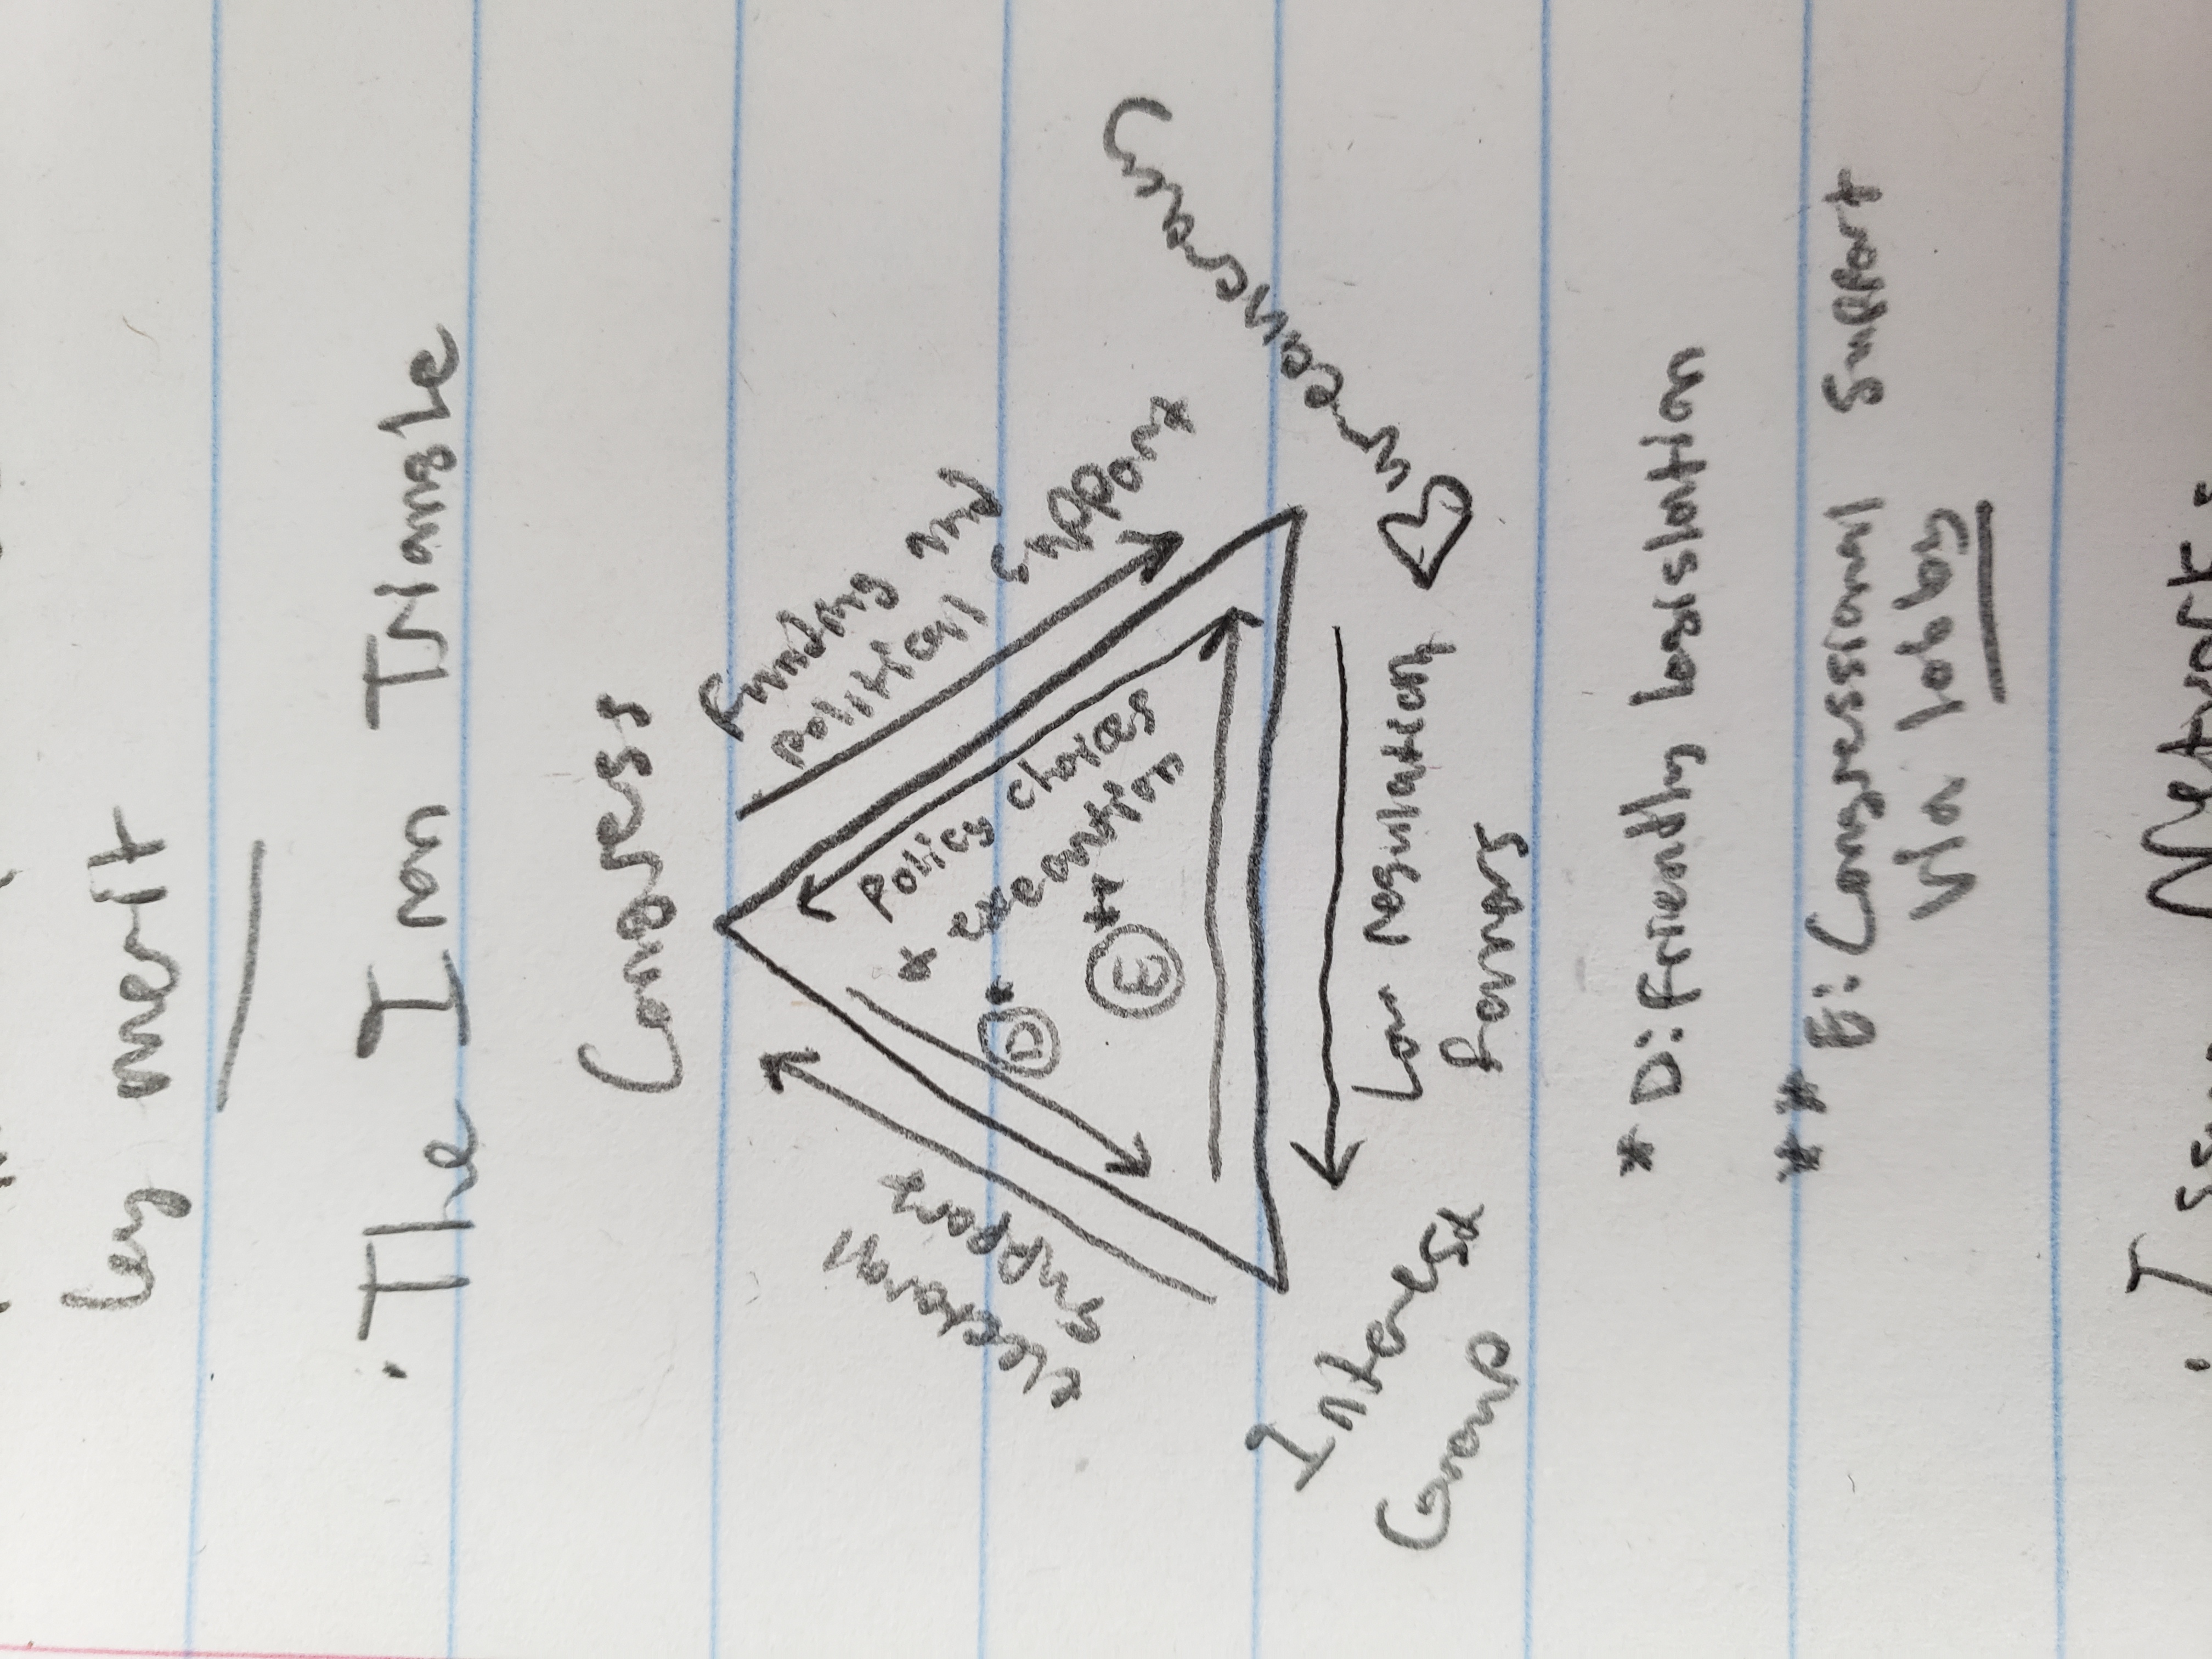 by merit
· The Iron Triangle
Congress
Funding and
political support
electoral
support
Policy choices
* execution
D *
E **
Bureaucracy
Low regulation
favors
Interest
Group
* D: Friendly legislation
** E: Congressional support
via lobby